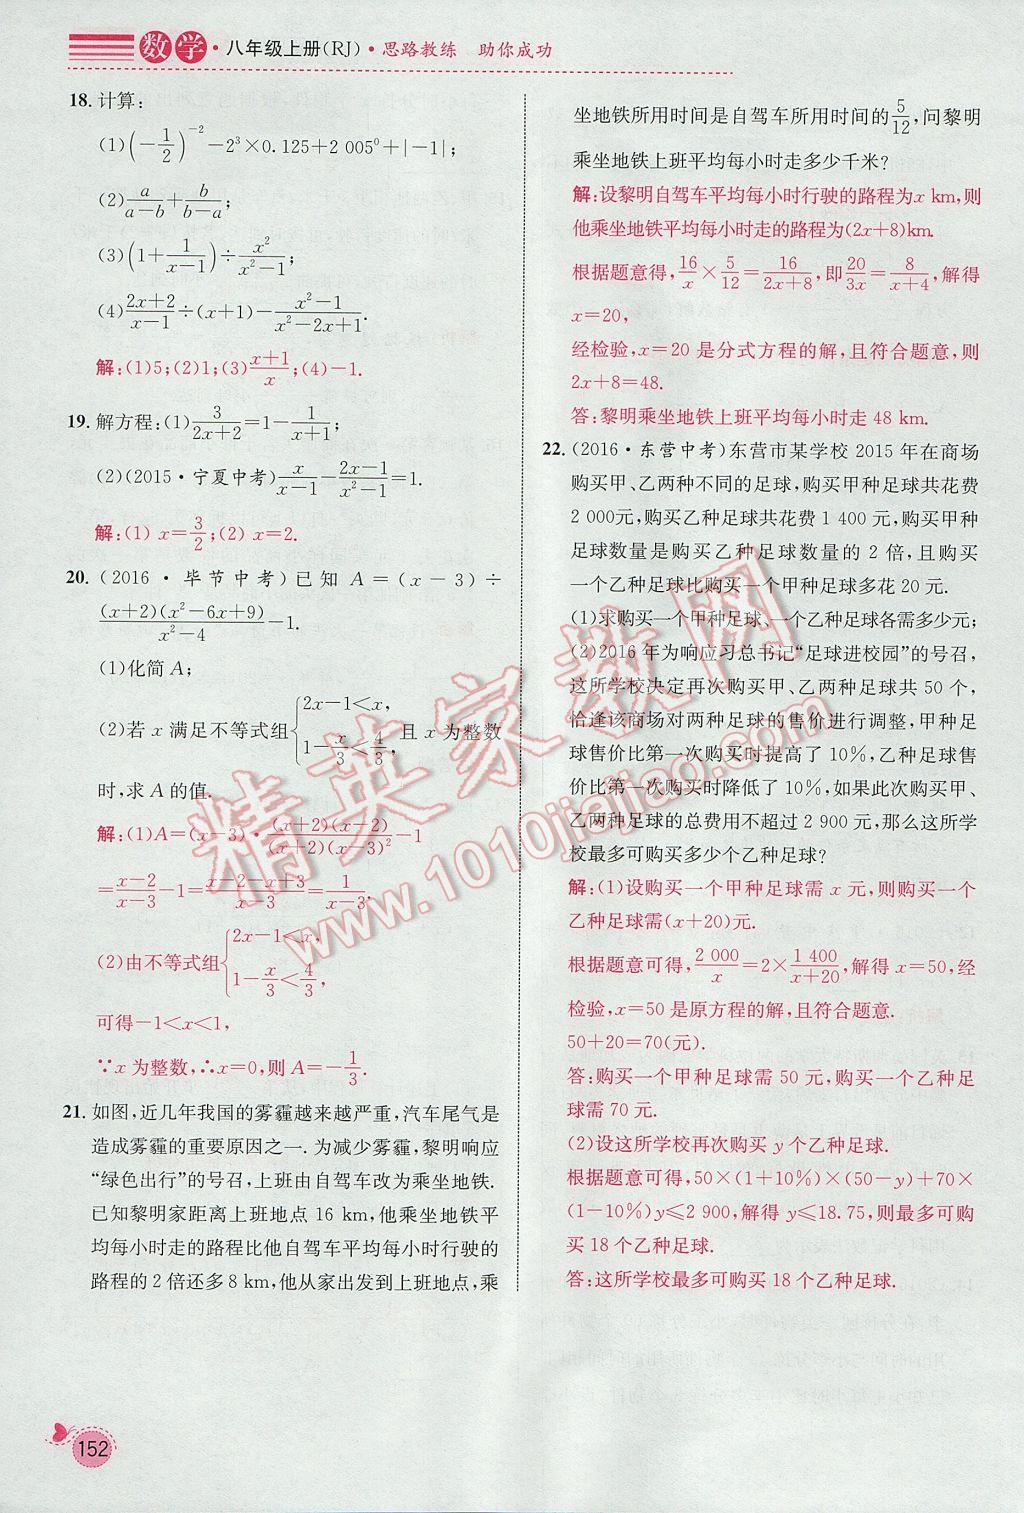 数学·八年级上册(RJ)·思路教练 助你成功
18. 计算:
(1)(-1/2)^-2-2³×0.125+2 005⁰+|-1|;
(2)a/(a-b)+b/(b-a);
(3)(1+1/(x-1))÷x²/(x²-1);
(4)(2x+2)/(x-1)÷(x+1)-(x²-1)/(x²-2x+1).
解:(1)5;(2)1;(3)(x+1)/x;(4)-1.
19. 解方程:(1)3/(2x+2)=1-1/(x+1);
(2)(2015·宁夏中考)x/(x-1)-(2x-1)/(x²-1)=1.
解:(1) x=3/2;(2) x=2.
20. (2016·毕节中考)已知 A=(x-3)÷
(x+2)(x²-6x+9)/(x²-4)-1.
(1)化简 A;
(2)若 x 满足不等式组{2x-1<x, 1-x/3<4/3, 且 x 为整数
时,求 A 的值.
解:(1)A=(x-3)·(x+2)(x-2)/((x+2)(x-3)²)-1
=(x-2)/(x-3)-1=(x-2-x+3)/(x-3)=1/(x-3).
(2)由不等式组{2x-1<x, 1-x/3<4/3,
可得-1<x<1,
∵x 为整数,∴x=0,则 A=-1/3.
21. 如图,近几年我国的雾霾越来越严重,汽车尾气是
造成雾霾的重要原因之一. 为减少雾霾,黎明响应
“绿色出行”的号召,上班由自驾车改为乘坐地铁.
已知黎明家距离上班地点 16 km,他乘坐地铁平
均每小时走的路程比他自驾车平均每小时行驶的
路程的 2 倍还多 8 km,他从家出发到上班地点,乘
坐地铁所用时间是自驾车所用时间的5/12,问黎明
乘坐地铁上班平均每小时走多少千米?
解:设黎明自驾车平均每小时行驶的路程为x km,则
他乘坐地铁平均每小时走的路程为(2x+8)km.
根据题意得,16/x×5/12=16/(2x+8),即20/3x=8/(x+4),解得
x=20,
经检验,x=20 是分式方程的解,且符合题意,则
2x+8=48.
答:黎明乘坐地铁上班平均每小时走 48 km.
22. (2016·东营中考)东营市某学校 2015 年在商场
购买甲、乙两种不同的足球,购买甲种足球共花费
2 000元,购买乙种足球共花费 1 400 元,购买甲种
足球数量是购买乙种足球数量的 2 倍,且购买
一个乙种足球比购买一个甲种足球多花 20 元.
(1)求购买一个甲种足球、一个乙种足球各需多少元;
(2)2016 年为响应习总书记“足球进校园”的号召,
这所学校决定再次购买甲、乙两种足球共 50 个,
恰逢该商场对两种足球的售价进行调整,甲种足
球售价比第一次购买时提高了 10%,乙种足球售
价比第一次购买时降低了 10%,如果此次购买甲、
乙两种足球的总费用不超过 2 900 元,那么这所学
校最多可购买多少个乙种足球?
解:(1)设购买一个甲种足球需 x 元,则购买一个
乙种足球需(x+20)元.
根据题意可得,2 000/x=2×1 400/(x+20),解得 x=50,经
检验,x=50 是原方程的解,且符合题意.
50+20=70(元).
答:购买一个甲种足球需 50 元,购买一个乙种足
球需 70 元.
(2)设这所学校再次购买 y 个乙种足球.
根据题意可得,50×(1+10%)×(50-y)+70×
(1-10%)y≤2 900,解得 y≤18.75,则最多可购
买 18 个乙种足球.
答:这所学校最多可购买 18 个乙种足球.
精英家教网
www.1010jiajiao.com
152